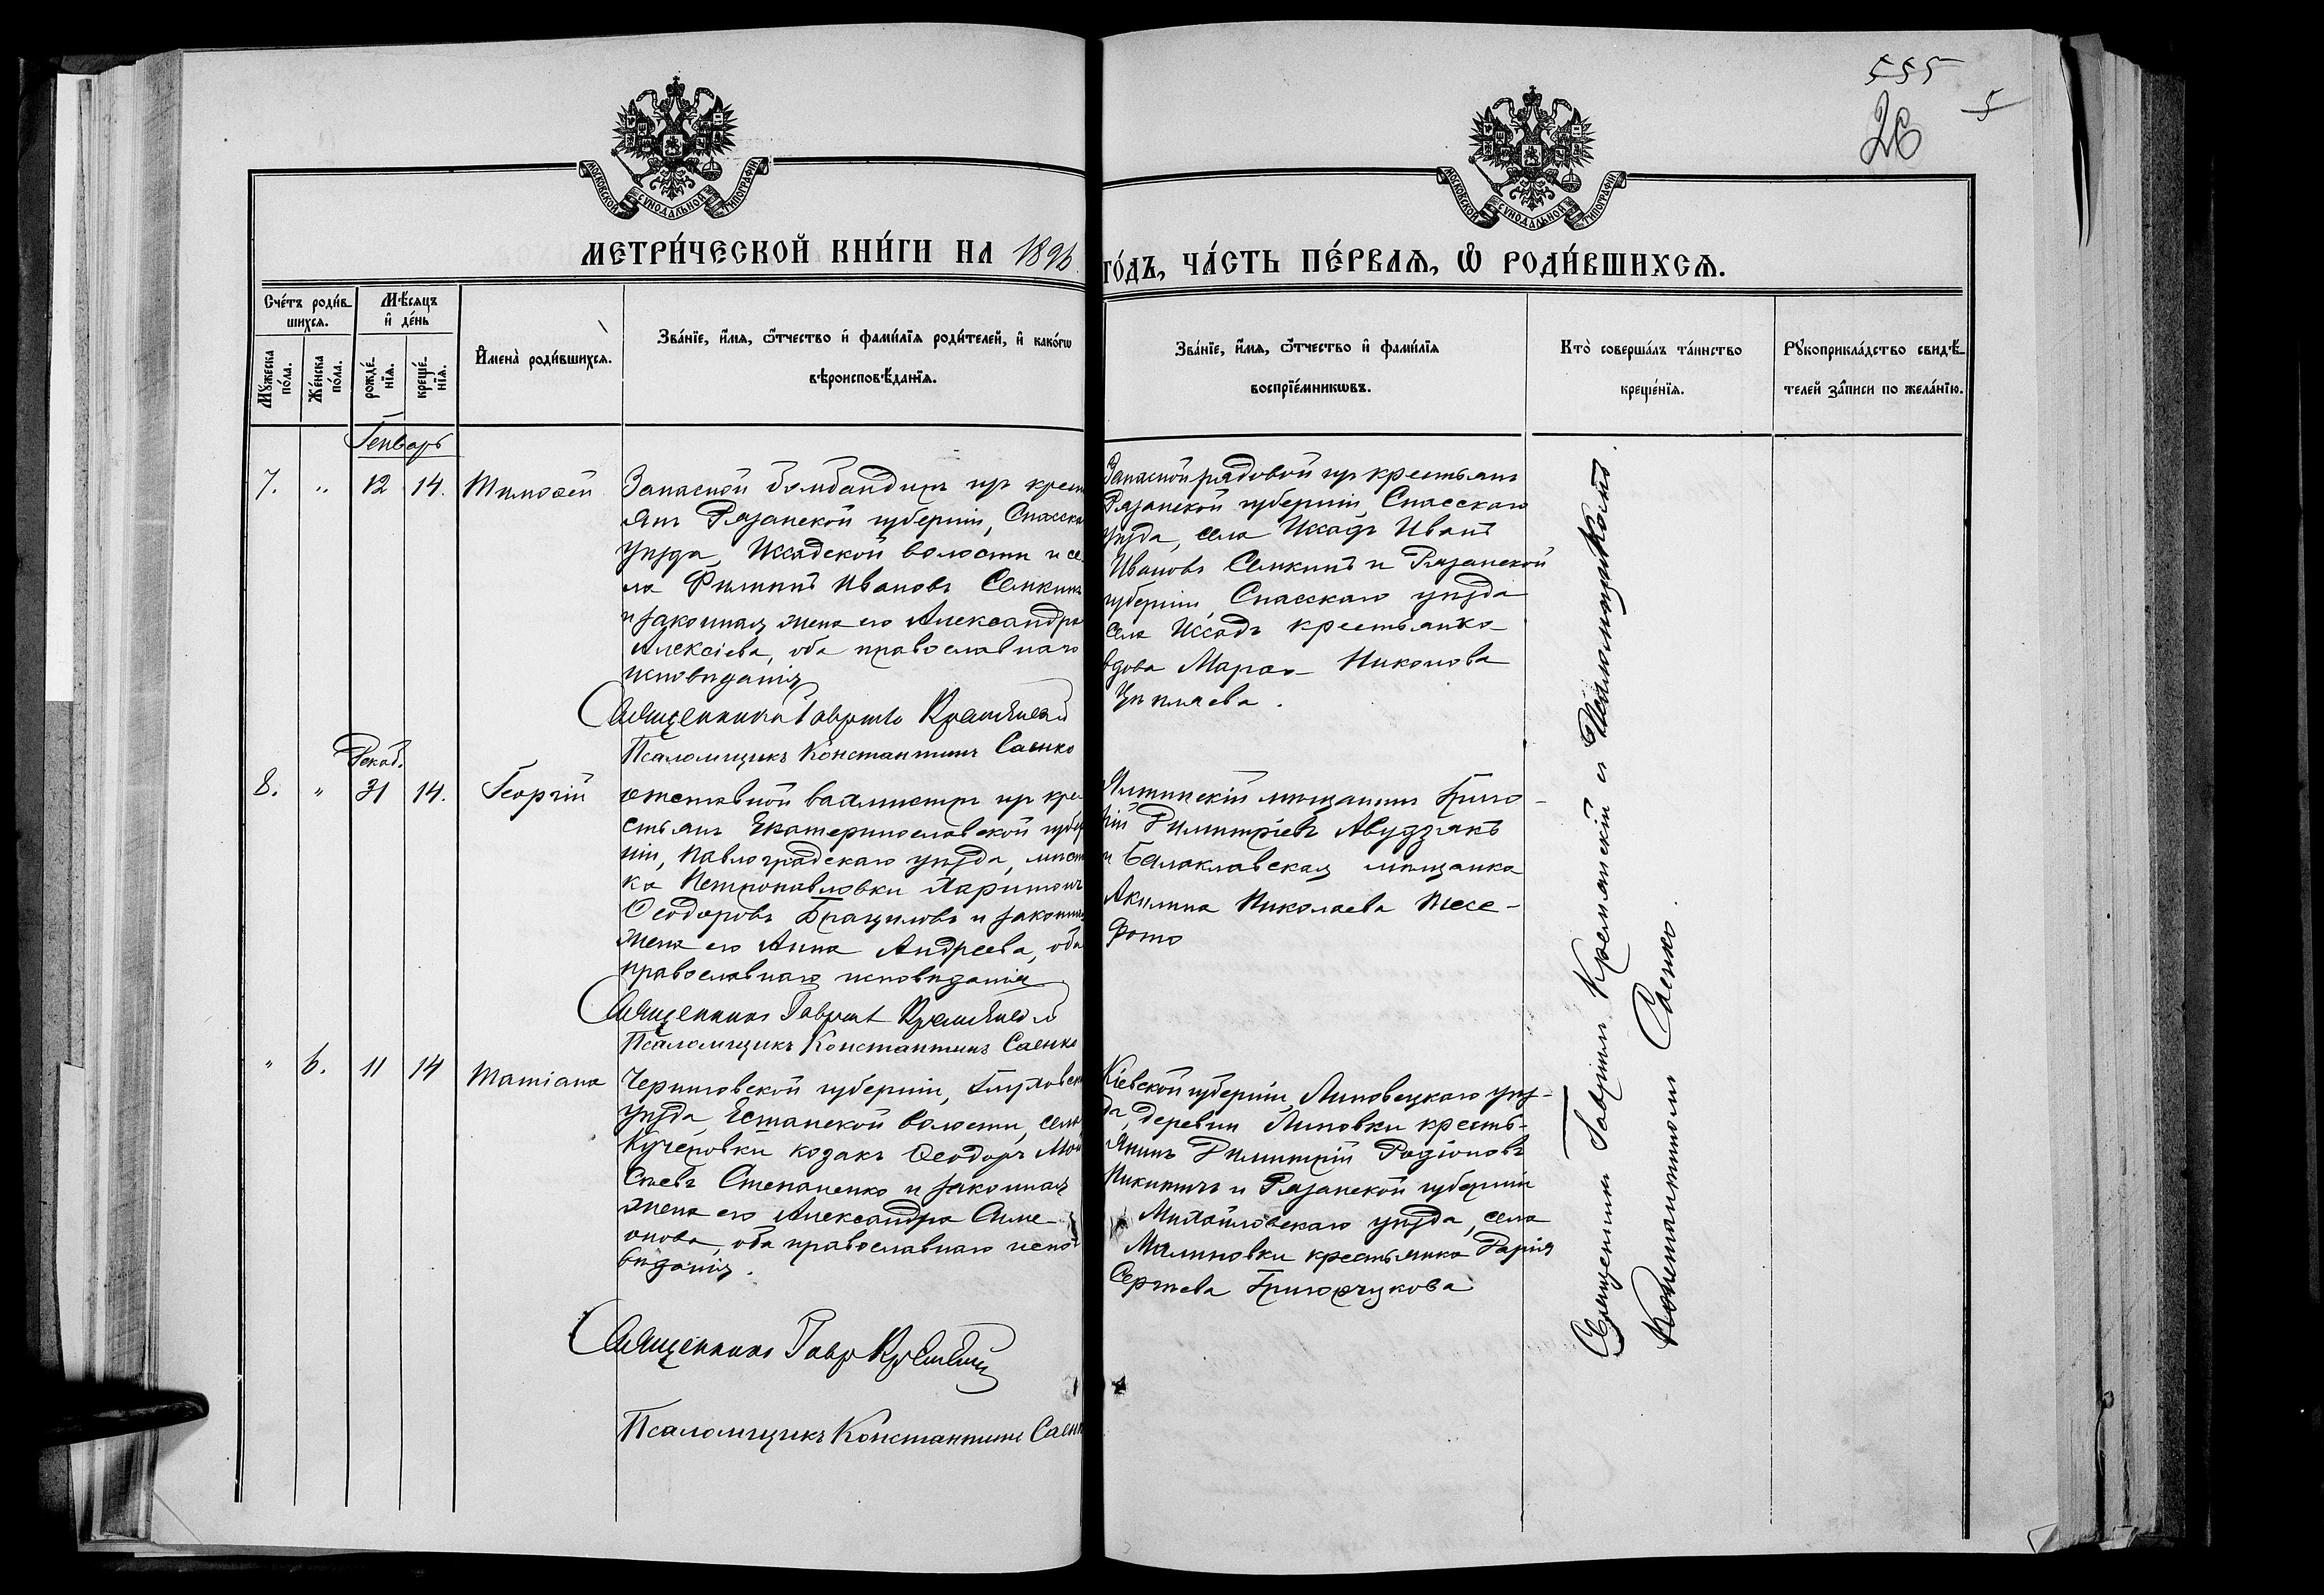 555
5
26
МОСКОВСКОЙ СѴНОДАЛЬНОЙ ТИПОГРАФІИ
МОСКОВСКОЙ СѴНОДАЛЬНОЙ ТИПОГРАФІИ
МЕТРИ́ЧЕСКОЙ КНИ́ГИ НА 1896
ГО́ДЪ, ЧА́СТЬ ПЕ́РВАѦ, Ѡ РОДИ́ВШИХСѦ.
Сче́тъ роди́в-
шихсѧ.
Мѣ́сѧцъ
и҆ де́нь
Мꙋ́жеска по́ла.
Же́нска по́ла.
рожде́-нїѧ.
креще́-нїѧ.
И҆мена̀ роди́вшихсѧ.
Зва́нїе, и҆́мѧ, ѻ҆́тчество и҆ фами́лїѧ роди́телей, и҆ како́гѡ
вѣроисповѣ́данїѧ.
Зва́нїе, и҆́мѧ, ѻ҆́тчество и҆ фами́лїѧ
воспрїе́мникѡвъ.
Кто̀ соверша́лъ та́инство
креще́нїѧ.
Рꙋкоприкла́дство свидѣ́-
телей за́писи по жела́нїю.
Генварь
7. " 12 14. Тимоѳей
Запасной бомбандиръ изъ крест
янъ Рязанской губерніи, Спасска
уѣзда, Ижадской волости и се
ла Филиппъ Ивановъ Семкинъ
и законная жена его Александра
Алексіева, оба православнаго
исповѣданія
Священникъ Гавріилъ Кремянскій
Псаломщикъ Константинъ Саенко
Запасной рядовой изъ крестьянъ
Рязанской губерніи, Спасскаго
уѣзда, села Ижадъ Иванъ
Ивановъ Семкинъ и Рязанской
губерніи, Спасскаго уѣзда
села Ижадъ крестьянка
вдова Марѳа Никонова
Цыпляева.
Декаб.
8. " 31 14. Георгій
отставной вахмистръ изъ кре
стьянъ Екатеринославской губер
ніи, Павлоградскаго уѣзда, мѣст
ка Петропавловки Харитонъ
Ѳеодоровъ Бращиловъ и законная
жена его Анна Андреева, оба
православнаго исповѣданія
Священникъ Гавріилъ Кремянскій
Псаломщикъ Константинъ Саенко
Ялтинскій мѣщанинъ Григо-
рій Димитріевъ Авудзякъ
и Балаклавская мѣщанка
Акилина Николаева Ксе-
фото
" 6. 11 14 Татіана
Черниговской губерніи, Глуховск
уѣзда, Есманской волости, села
Кучеровки козакъ Ѳеодоръ Мои
сеевъ Степаненко и законная
жена его Александра Симе-
онова, оба православнаго испо
вѣданія.
Священникъ Гавр Кремянскій
Псаломщикъ Константинъ Саенк
Кіевской губерніи, Липовецкаго уѣз-
да, деревни Липовки кресть-
янинъ Димитрій Родіоновъ
Никитичъ и Рязанской губерніи
Михайловскаго уѣзда, села
Малиновки крестьянка Дарія
Сергѣева Григорчукова
Священникъ Гавріилъ Кремянскій съ Псаломщикомъ
Константиномъ Саенко.